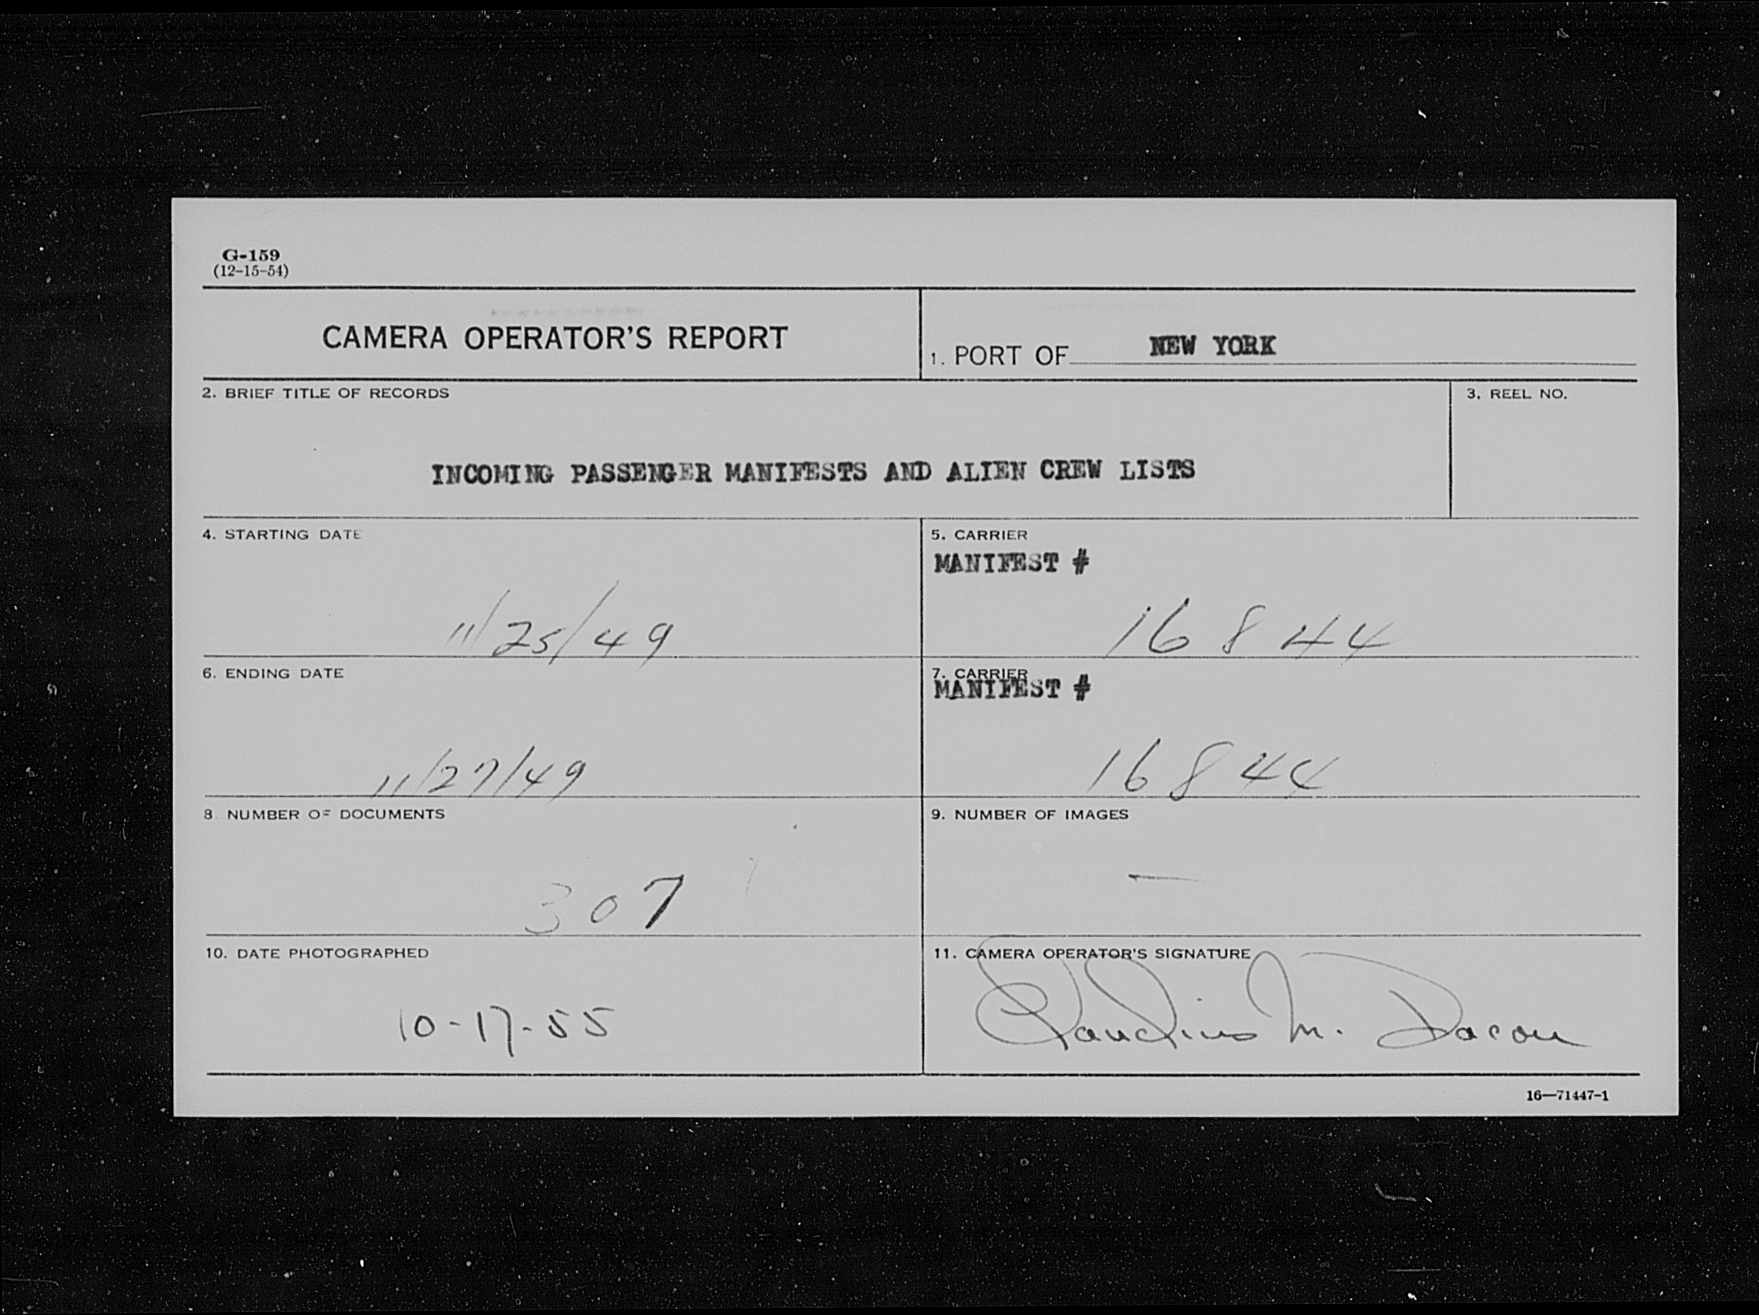 G-159
(12-15-54)
CAMERA OPERATOR'S REPORT
1. PORT OF NEW YORK
2. BRIEF TITLE OF RECORDS
3. REEL NO.
INCOMING PASSENGER MANIFESTS AND ALIEN CREW LISTS
4. STARTING DATE
11/25/49
5. CARRIER
MANIFEST #
16844
6. ENDING DATE
11/27/49
7. CARRIER
MANIFEST #
16844
8. NUMBER OF DOCUMENTS
307
9. NUMBER OF IMAGES
—
10. DATE PHOTOGRAPHED
10-17-55
11. CAMERA OPERATOR'S SIGNATURE
Claudius M. Dacon
16—71447-1